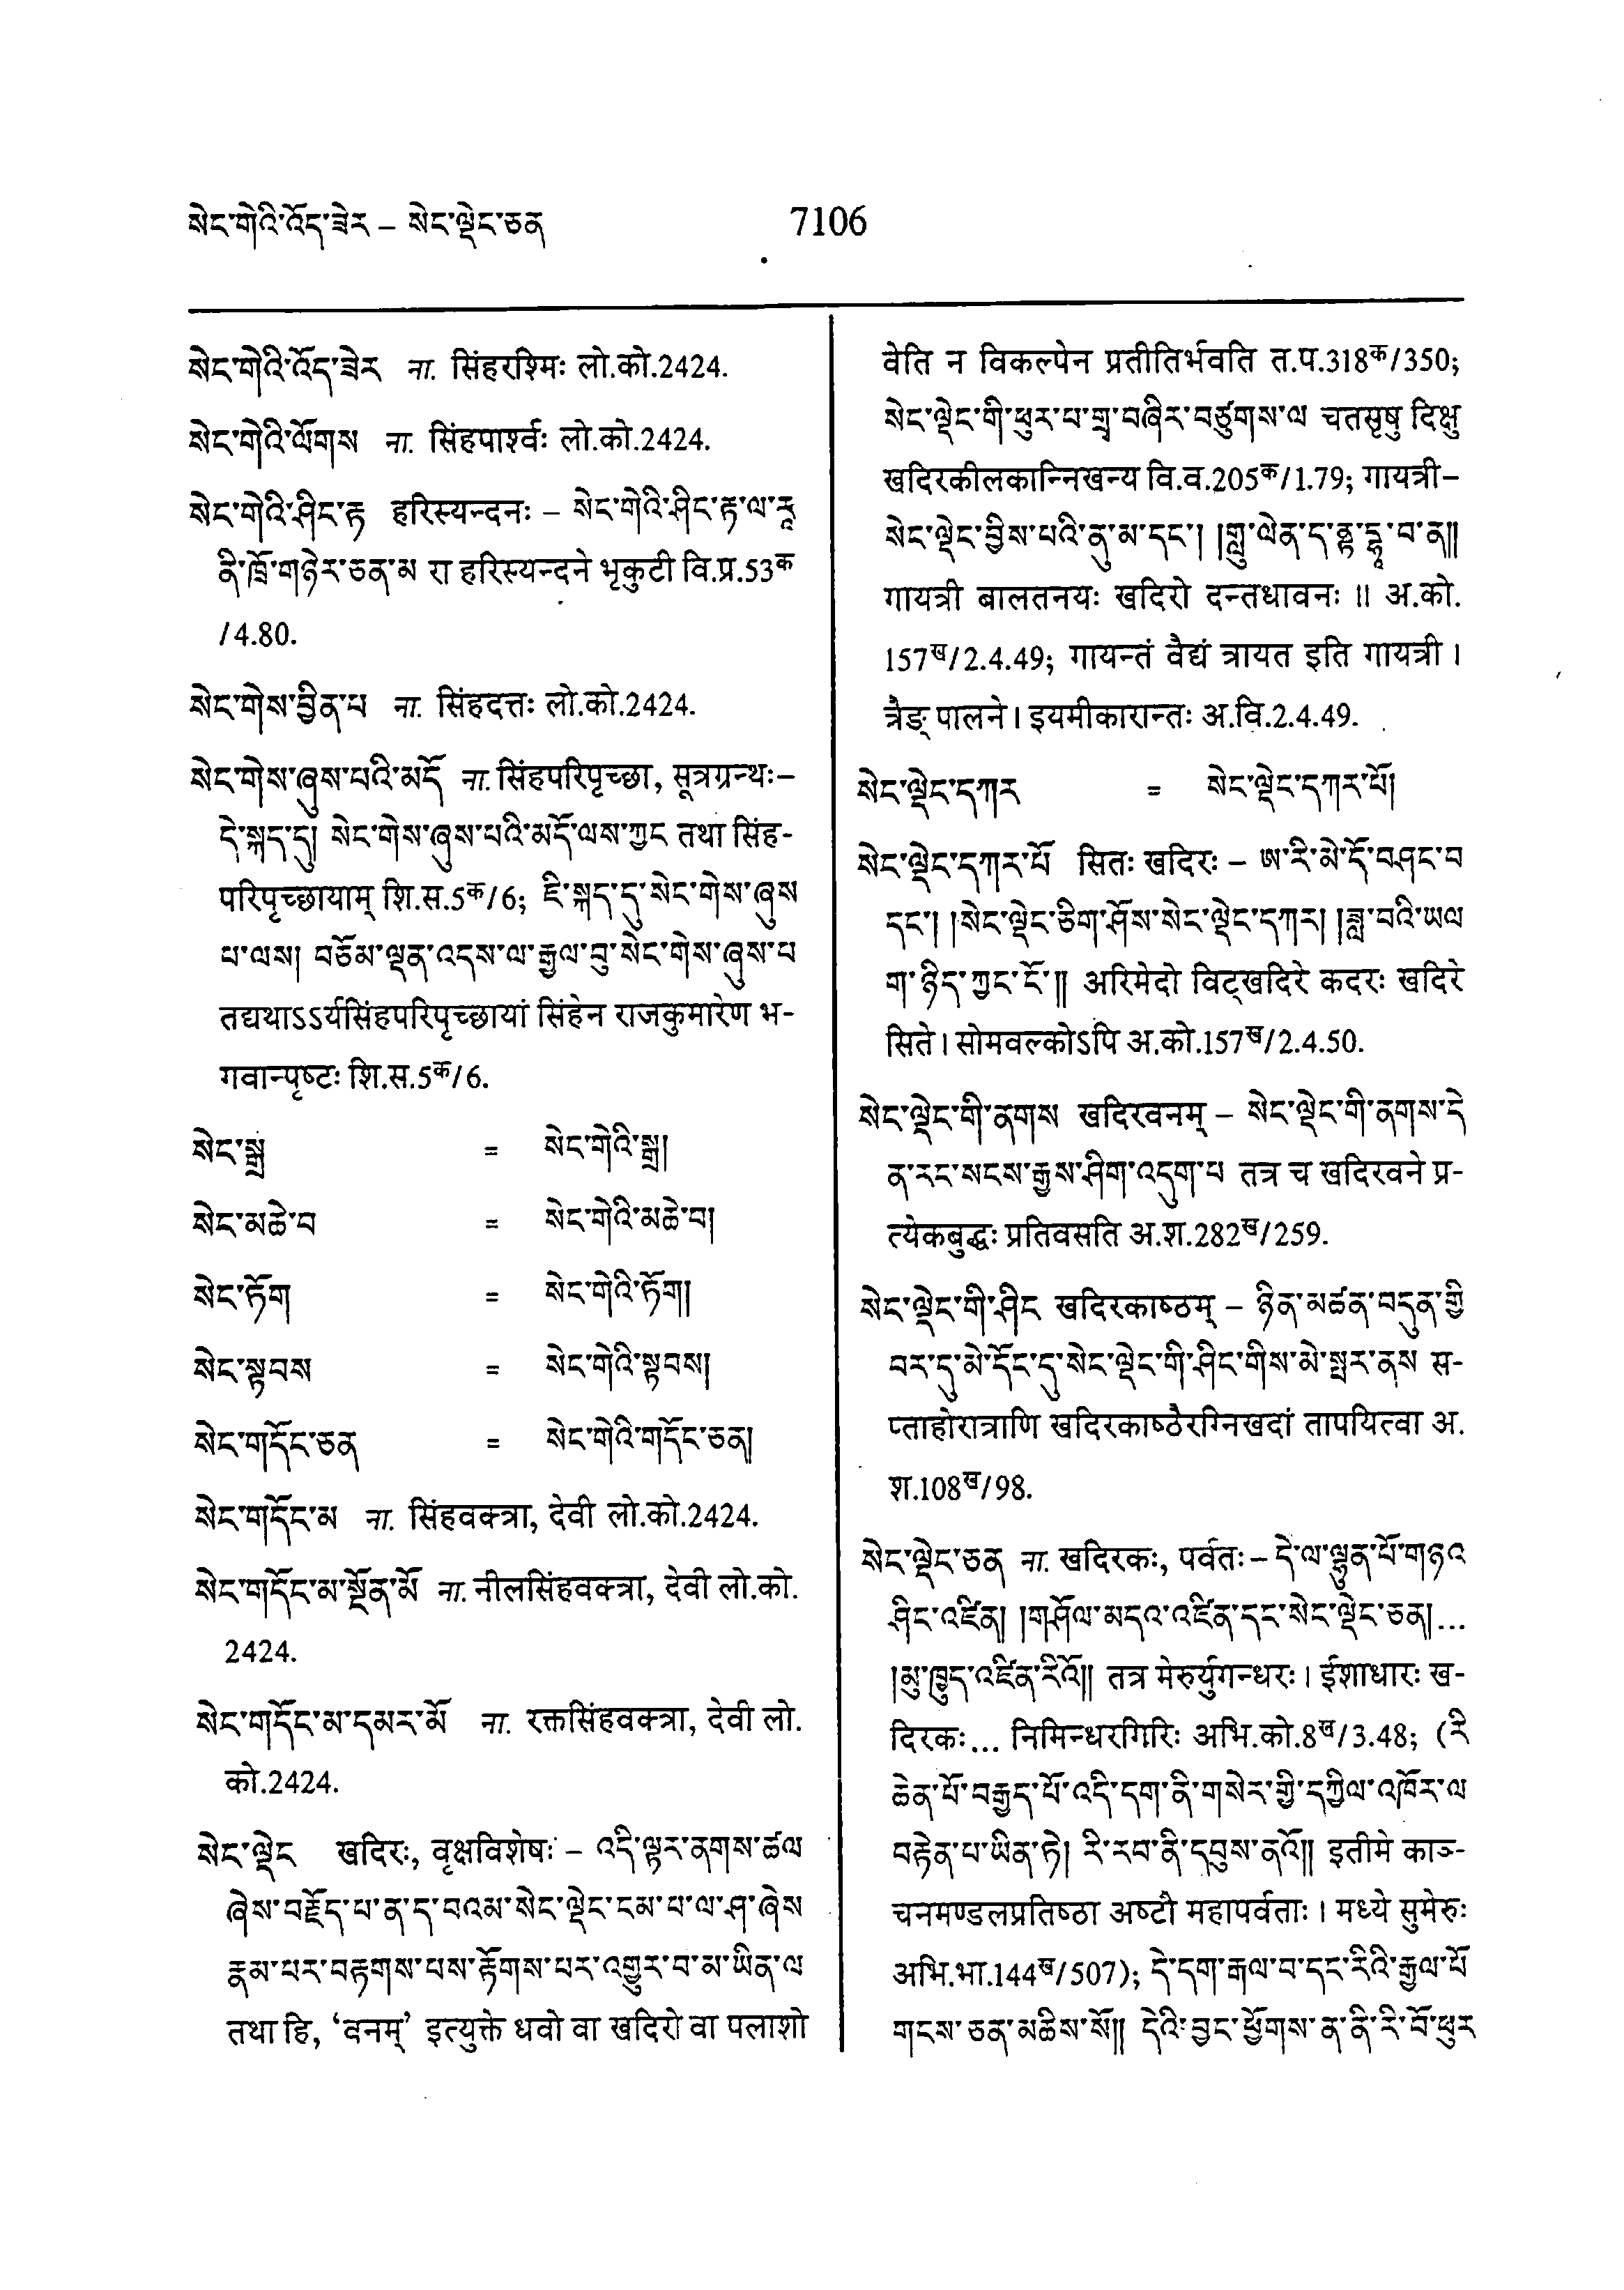 སེང་གེའི་འོད་ཟེར – སེང་ལྡེང་ཅན
7106
སེང་གེའི་འོད་ཟེར ना. सिंहरश्मिः लो.को.2424.
སེང་གེའི་ལོགས ना. सिंहपार्श्वः लो.को.2424.
སེང་གེའི་ཤིང་རྟ हरिस्यन्दनः – སེང་གེའི་ཤིང་རྟ་ལ་རཱ
ནི་ཁྲོ་གཉེར་ཅན་མ रा हरिस्यन्दने भृकुटी वि.प्र.53क
/4.80.
སེང་གེས་བྱིན་པ ना. सिंहदत्तः लो.को.2424.
སེང་གེས་ཞུས་པའི་མདོ ना. सिंहपरिपृच्छा, सूत्रग्रन्थः–
དེ་སྐད་དུ། སེང་གེས་ཞུས་པའི་མདོ་ལས་ཀྱང तथा सिंह-
परिपृच्छायाम् शि.स.5क/6; ཇི་སྐད་དུ་སེང་གེས་ཞུས
པ་ལས། བཅོམ་ལྡན་འདས་ལ་རྒྱལ་བུ་སེང་གེས་ཞུས་པ
तद्यथाऽऽर्यसिंहपरिपृच्छायां सिंहेन राजकुमारेण भ-
गवान्पृष्टः शि.स.5क/6.
སེང་སྒྲ = སེང་གེའི་སྒྲ།
སེང་མཆེ་བ = སེང་གེའི་མཆེ་བ།
སེང་ཏོག = སེང་གེའི་ཏོག།
སེང་སྟབས = སེང་གེའི་སྟབས།
སེང་གདོང་ཅན = སེང་གེའི་གདོང་ཅན།
སེང་གདོང་མ ना. सिंहवक्त्रा, देवी लो.को.2424.
སེང་གདོང་མ་སྔོན་མོ ना. नीलसिंहवक्त्रा, देवी लो.को.
2424.
སེང་གདོང་མ་དམར་མོ ना. रक्तसिंहवक्त्रा, देवी लो.
को.2424.
སེང་ལྡེང खदिरः, वृक्षविशेषः – འདི་ལྟར་ནགས་ཚལ
ཞེས་བརྗོད་པ་ན་ད་བའམ་སེང་ལྡེང་ངམ་པ་ལ་ཤ་ཞེས
རྣམ་པར་བརྟགས་པས་རྟོགས་པར་འགྱུར་བ་མ་ཡིན་ལ
तथा हि, ‘वनम्’ इत्युक्ते धवो वा खदिरो वा पलाशो
वेति न विकल्पेन प्रतीतिर्भवति त.प.318क/350;
སེང་ལྡེང་གི་ཕུར་པ་གྲྭ་བཞིར་བཙུགས་ལ चतसृषु दिक्षु
खदिरकीलकान्निखन्य वि.व.205क/1.79; गायत्री–
སེང་ལྡེང་བྱིས་པའི་ནུ་མ་དང་། །གླུ་ལེན་ད་ནྟ་དྷཱ་བ་ན།།
गायत्री बालतनयः खदिरो दन्तधावनः ॥ अ.को.
157ख/2.4.49; गायन्तं वैद्यं त्रायत इति गायत्री ।
त्रैङ् पालने । इयमीकारान्तः अ.वि.2.4.49.
སེང་ལྡེང་དཀར = སེང་ལྡེང་དཀར་པོ།
སེང་ལྡེང་དཀར་པོ सितः खदिरः – ཨ་རི་མེ་དོ་བཤང་བ
དང་། །སེང་ལྡེང་ཅིག་ཤོས་སེང་ལྡེང་དཀར། །ཟླ་བའི་ཡལ
ག་ཉིད་ཀྱང་ངོ་།། अरिमेदो विट्खदिरे कदरः खदिरे
सिते । सोमवल्कोऽपि अ.को.157ख/2.4.50.
སེང་ལྡེང་གི་ནགས खदिरवनम् – སེང་ལྡེང་གི་ནགས་དེ
ན་རང་སངས་རྒྱས་ཤིག་འདུག་པ तत्र च खदिरवने प्र-
त्येकबुद्धः प्रतिवसति अ.श.282ख/259.
སེང་ལྡེང་གི་ཤིང खदिरकाष्ठम् – ཉིན་མཚན་བདུན་གྱི
བར་དུ་མེ་དོང་དུ་སེང་ལྡེང་གི་ཤིང་གིས་མེ་སྤར་ནས स-
प्ताहोरात्राणि खदिरकाष्ठैरग्निखदां तापयित्वा अ.
श.108ख/98.
སེང་ལྡེང་ཅན ना. खदिरकः, पर्वतः – དེ་ལ་ལྷུན་པོ་གཉའ
ཤིང་འཛིན། །གཤོལ་མདའ་འཛིན་དང་སེང་ལྡེང་ཅན།...
།མུ་ཁྱུད་འཛིན་རིའོ།། तत्र मेरुर्युगन्धरः । ईशाधारः ख-
दिरकः... निमिन्धरगिरिः अभि.को.8ख/3.48; (རི
ཆེན་པོ་བརྒྱད་པོ་འདི་དག་ནི་གསེར་གྱི་དཀྱིལ་འཁོར་ལ
བརྟེན་པ་ཡིན་ཏེ། རི་རབ་ནི་དབུས་ནའོ།། इतीमे काञ्-
चनमण्डलप्रतिष्ठा अष्टौ महापर्वताः । मध्ये सुमेरुः
अभि.भा.144ख/507); དེ་དག་རྒལ་བ་དང་རིའི་རྒྱལ་པོ
གངས་ཅན་མཆིས་སོ།། དེའི་བྱང་ཕྱོགས་ན་ནི་རི་བོ་ཕུར